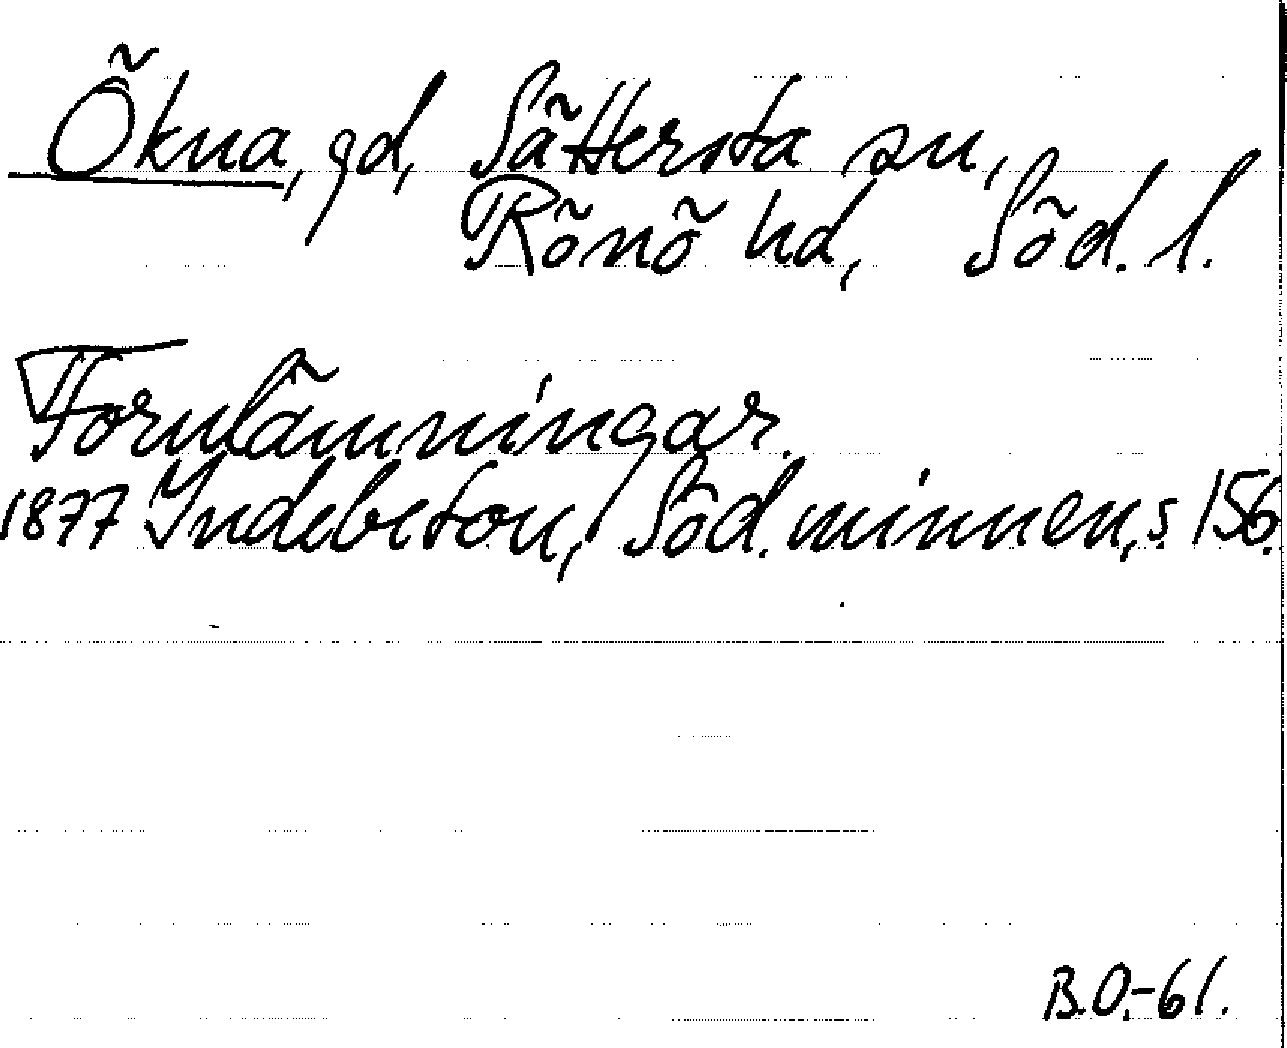 Ökna, gd, Sättersta sn,
Rönö hd, Söd. l.
Fornlämningar.
1877 Indebetou, Söd. minnen, s. 156.
B.O.-61.